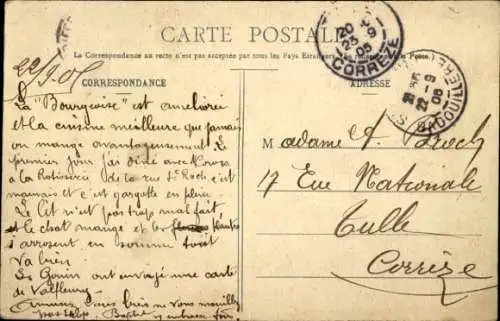 CARTE POSTALE
La Correspondance au recto n'est pas acceptée par tous les Pays Étrangers
CORRESPONDANCE
ADRESSE
CORREZE
23 -9
05
22/9.05
La "Bourgeoise" est améliorée
et la cuisine meilleure que jamais
on mange avantageusement. Le
premier jour j'ai dîné avec
à la Rotisserie de la rue St Roch c'est
mauvais et c'est gargotte en plein
Le lit n'est pas trop mal fait
et le chat mange et les plantes
s'arrosent, en somme tout
va bien.
Les Gouin ont envoyé une carte
de Valfleury
Madame A. Broch
17 Rue Nationale
Tulle
Corrèze